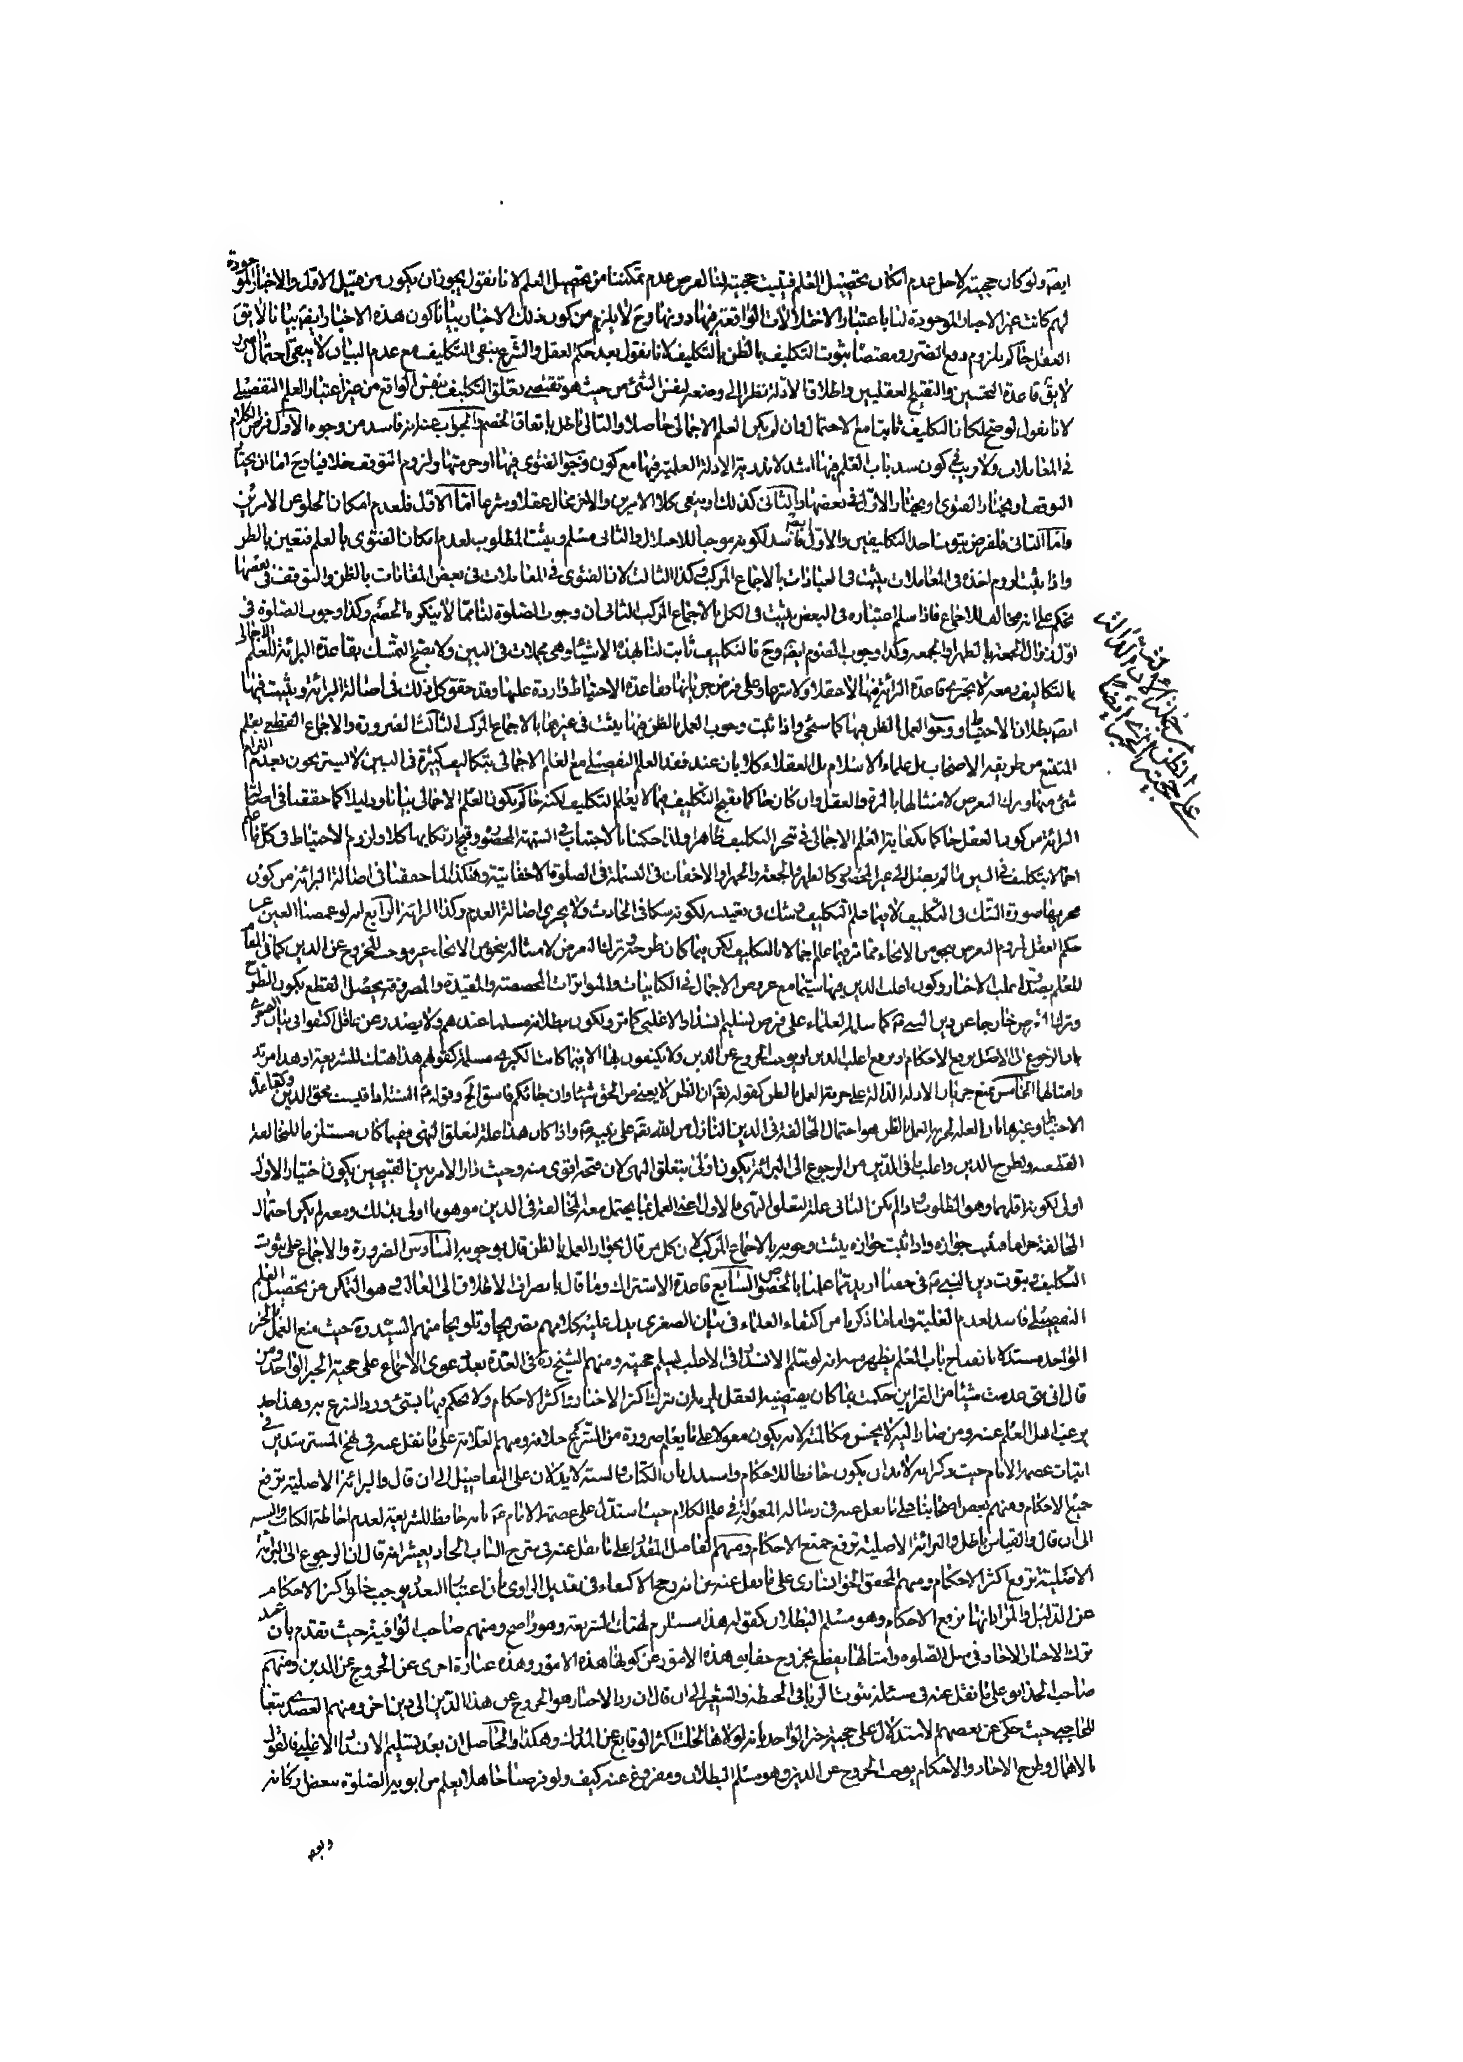 ايضا ولو كان حجيته لاجل عدم امكان تحصيل العلم فيثبت حجيته لنا لفرض عدم تمكننا من تحصيل العلم لانا نقول يجوز ان يكون من قبيل الاول والاخبار الموجودة
لهم كانت غير الاخبار الموجودة لنا باعتبار الاختلالات الواقعة فيها دونها وح لا يلزم من كون ذلك الاخبار بيانا كون هذه الاخبار ايضا بيانا لا يق
العقل حاكم بلزوم دفع الضرر ومقتضاه ثبوت التكليف بالظن بالتكليف لانا نقول بعد حكم العقل والشرع بنفي التكليف مع عدم البيان لا يبقى احتمال الضرر
لا يق قاعدة التحسين والتقبيح العقليين واطلاق الادلة نظرا الى وضعه لنفس الشئ من حيث هو تقتضي تعلق التكليف بنفس الواقع من غير اعتبار العلم التفصيلي
لانا نقول لو صح لكان التكليف ثابتا مع الاحتمال وان لم يكن العلم الاجمالي حاصلا والتالي باطل باتفاق الخصم والجواب عنه انه فاسد من وجوه الاول فرض الكلام
في المعاملات ولا ريب في كون سد باب العلم فيها اشد لندرة الادلة العلمية فيها مع كون وجوب الفتوى فيها او حرمتها ولزوم التوقف خلافيا وح اما ان يختار
التوقف او يختار الفتوى او يختار الاول في بعضها والثاني كذلك او ينفى كلا الامرين والاخر محال عقلا وشرعا اما الاول فلعدم امكان الخلو عن الامرين
واما الثاني فلفرض ثبوت احد التكليفين والاول ايضا فاسد لكونه موجبا للاختلال والثاني مسلم ويثبت المطلوب لعدم امكان الفتوى بالعلم فتعين بالظن
واذا ثبت لزوم اخذه في المعاملات يثبت في العبادات بالاجماع المركب وكذا الثالث لان الفتوى في المعاملات في بعض المقامات بالظن والتوقف في بعضها
تحكم على انه مخالف للاجماع فاذا سلم اعتباره في البعض يثبت في الكل بالاجماع المركب الثاني ان وجوب الصلوة لنا مما لا ينكره الخصم وكذا وجوب الصلوة في
اول زوال الجمعة بالظهر او الجمعة وكذا وجوب الصوم ايضا وح فالتكليف ثابت لنا بهذه الاشياء وهي مجملات في البين ولا يصح التمسك بقاعدة البرائة للعلم الاجمالي
بالتكاليف ومعه لا تجري قاعدة البرائة فيها لا عقلا ولا شرعا وعلى فرض جريانها فقاعدة الاحتياط واردة عليها وقد حقق كل ذلك في اصالة البرائة ويثبت فيها
ايضا بطلان الاحتياط ووجوب العمل بالظن فيها كما سيجئ واذا ثبت وجوب العمل بالظن فيها يثبت في غيرها بالاجماع المركب الثالث الضرورة والاجماع القطعي بعلم
المتتبع من طريقة الاصحاب بل علماء الاسلام بل العقلاء كلا بان عند فقد العلم التفصيلي مع العلم الاجمالي بتكاليف كثيرة في البين لا يستريحون بعدم التزام
شئ منها وترك التعرض لامتثالها بالمرة والعقل وان كان حاكما بقبح التكليف فيما لا يعلم التكليف لكنه حاكم بكون العلم الاجمالي بيانا ودليلا كما حققنا في اصالة
البرائة من كون العقل حاكما بكفاية العلم الاجمالي في تنجز التكليف ظاهرا ولذا حكمنا بالاجتناب في الشبهة المحصورة وقبح ارتكابها كلا ولزوم الاحتياط في كل ما علم
اجمالا بتكليف في البين ما لم يصل الى غير المحصور كالظهر والجمعة والجهر والاخفات في البسملة في الصلوة الاخفاتية وهكذا لما حققنا في اصالة البرائة من كون
مجريها صورة الشك في التكليف لا فيما علم التكليف وشك في تعيينه لكونه شكا في الحادث ولا يجري اصالة العدم وكذا البرائة الرابع انه لو غمضنا العين عن
حكم العقل لزوم التعرض بنحو من الانحاء مما مر فيما علم اجمالا بالتكليف لكن فيما كان طرحه وترك التعرض لامتثاله بنحو من الانحاء غير موجب للخروج عن الدين كما في المقام
للعلم بصدق اغلب الاخبار وكون اغلب الدين فيها سيما مع عروض الاجمال في الكتابيات والمتواترات المخصصة والمقيدة والمصروفة يحصل القطع بكون الطرح
وترك التعرض خارجا عن دين النبي ص كما سلم العلماء على فرض تسليم انسداد الاغلبي كما مر ولكون بطلانه مسلما عندهم ولا يصدر عن عاقل اكتفوا في بيان الصغرى
بان الرجوع الى الاصل يرفع الاحكام او يرفع اغلب الدين او يوجب الخروج عن الدين ولا يكتفون بها الا فيما كانت الكبرى مسلمة كقولهم هذا هتك للشريعة او هذا مرتد
وامثالها الخامس نمنع جريان الادلة الدالة على حرمة العمل بالظن كقوله تعالى ان الظن لا يغني من الحق شيئا وان جائكم فاسق الخ وقوله ع السنة اذا قيست محق الدين وكقاعدة
الاحتياط وغيرها بان العلة لحرمة العمل بالظن هو احتمال المخالفة في الدين النازل من الله تعالى على نبيه ص واذا كان هذا علة لتعلق النهي ففيما كان مستلزما للمخالفة
القطعية ولطرح الدين واغلب ما في الدين من الرجوع الى البرائة يكون اولى بتعلق النهي لان قبحه اقوى منه وحيث دار الامر بين القبيحين يكون اختيار الاول
اولى لكونه اقلهما وهو المطلوب واذا لم يكن الثاني علة لتعلق النهي بالاول اعني العمل بما يحتمل معه المخالفة في الدين موهوما اولى بذلك ومعه لم يكن احتمال
المخالفة حراما فيثبت جوازه واذا ثبت جوازه يثبت وجوبه بالاجماع المركب لان كل من قال بجواز العمل بالظن قال بوجوبه السادس الضرورة والاجماع على ثبوت
التكليف وثبوت دين النبي ص في حقنا ازيد مما علمنا بالخصوص السابع قاعدة الاشتراك وما قال بانصراف الاطلاق الى الغالب وهو التمكن عن تحصيل العلم
التفصيلي فاسد لعدم الغلبة واما ما ذكرنا من اكتفاء العلماء في بيان الصغرى يدل عليه كلامهم تصريحا وتلويحا منهم السيد ره حيث منع العمل بالخبر
الواحد مستدلا بانفتاح باب العلم يظهر منه انه لو سلم الانسداد في الاغلب ليسلم حجيته ومنهم الشيخ ره في العدة بعد دعوى الاجماع على حجية الخبر الواحد ومن
قال اني متى عدمت شيئا من القراين حكمت بما كان يقتضيه العقل يلزمه ان يترك اكثر الاخبار واكثر الاحكام ولا يحكم فيها بشئ ورد الشرع به وهذا حد
يرغب اهل العلم عنه ومن صار اليه لا يحسن مكالمته لانه يكون معولا على ما يعلم ضرورة من الشرع خلافه ومنهم العلامة على ما نقل عنه في نهج المسترشدين في
اثبات عصمة الامام حيث ذكر انه لا بد ان يكون حافظا للاحكام واستدل بان الكتاب والسنة لا يدلان على التفاصيل الى ان قال والبرائة الاصلية ترفع
جميع الاحكام ومنهم بعض اصحابنا على ما نقل عنه في رسالته المعمولة في علم الكلام حيث استدل على عصمة الامام ع بانه حافظ للشريعة لعدم احاطة الكتاب والسنة
الى ان قال والقياس باطل والبرائة الاصلية ترفع جميع الاحكام ومنهم الفاضل المقداد على ما نقل عنه في شرح الباب الحادي عشر انه قال ان الرجوع الى البرائة
الاصلية يرفع اكثر الاحكام ومنهم المحقق الخوانساري على ما نقل عنه من انه رجح الاكتفاء في تعديل الراوي بان اعتبار التعدد يوجب خلو اكثر الاحكام
عن الدليل والمراد انها يرفع الاحكام وهو مسلم البطلان كقوله هذا مستلزم لهتك الشريعة وهو واضح ومنهم صاحب الوافية حيث تقدم بان عند
ترك الاخبار الاحاد في مثل الصلوة وامثالها يقطع بخروج حقايق هذه الامور عن كونها هذه الامور وهذه عبارة اخرى عن الخروج عن الدين ومنهم
صاحب الحدائق على ما نقل عنه في مسئلة ثبوت الربا في الحنطة والشعير الى ان قال ان رد الاخبار هو الخروج عن هذا الدين الى دين اخر ومنهم العضدي تبعا
للحاجبي حيث حكى عن بعضهم الاستدلال على حجية خبر الواحد بانه لولاها لخلت اكثر الوقايع عن المدرك وهكذا والحاصل ان بعد تسليم الانسداد الاغلبي فالقول
بالاهمال وطرح الاخبار والاحكام يوجب الخروج عن الدين وهو مسلم البطلان ومفروغ عنه كيف ولو فرضنا جاهلا يعلم من ابويه الصلوة ببعض اركانه
وبعض